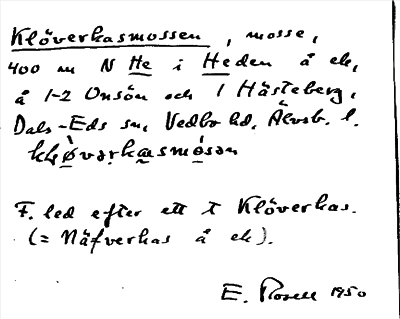 Klöverkasmossen, mosse,
400 m N He i Heden å ek,
å 1-2 Onsön och 1 Hästeberg,
Dals-Eds sn, Vedbo hd, Älvsb. l.
F. led efter ett † Klöverkas.
(= Näfverkas å ek).
E. Rosell 1950